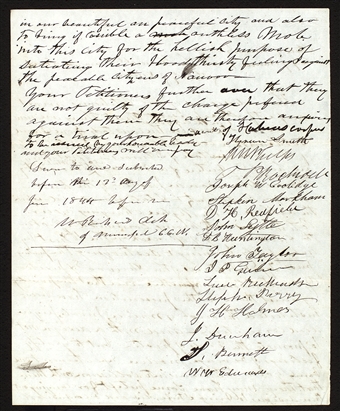 in our beautiful an peaceful City and also
to bring if possible a ruthless Mob
into this City for the hellish purpose of
satiating their bloodthirsty feelings against
the peaceable Citizens of Nauvoo
Your Petitioners further aver that they
are not guilty of the charge prefered
against them they are therefore
for a trial upon a writ of Habeas corpus
to be
and your Petitioners will ever pray
Hyrum Smith
W W Phelps
O P Rockwell
Sworn to and subscribed
Joseph W Coolidge
before this 12th day of
Stephen Markham
June 1844 before me
D. H. Redfield
W Richards Clk
John Lytle
of Municipal C. C. N.
D B Huntington
John Taylor
J P Greene
Levi Richards
Stephen Perry
J H Holmes
J. Dunham
S. Bennett
W W Edwards